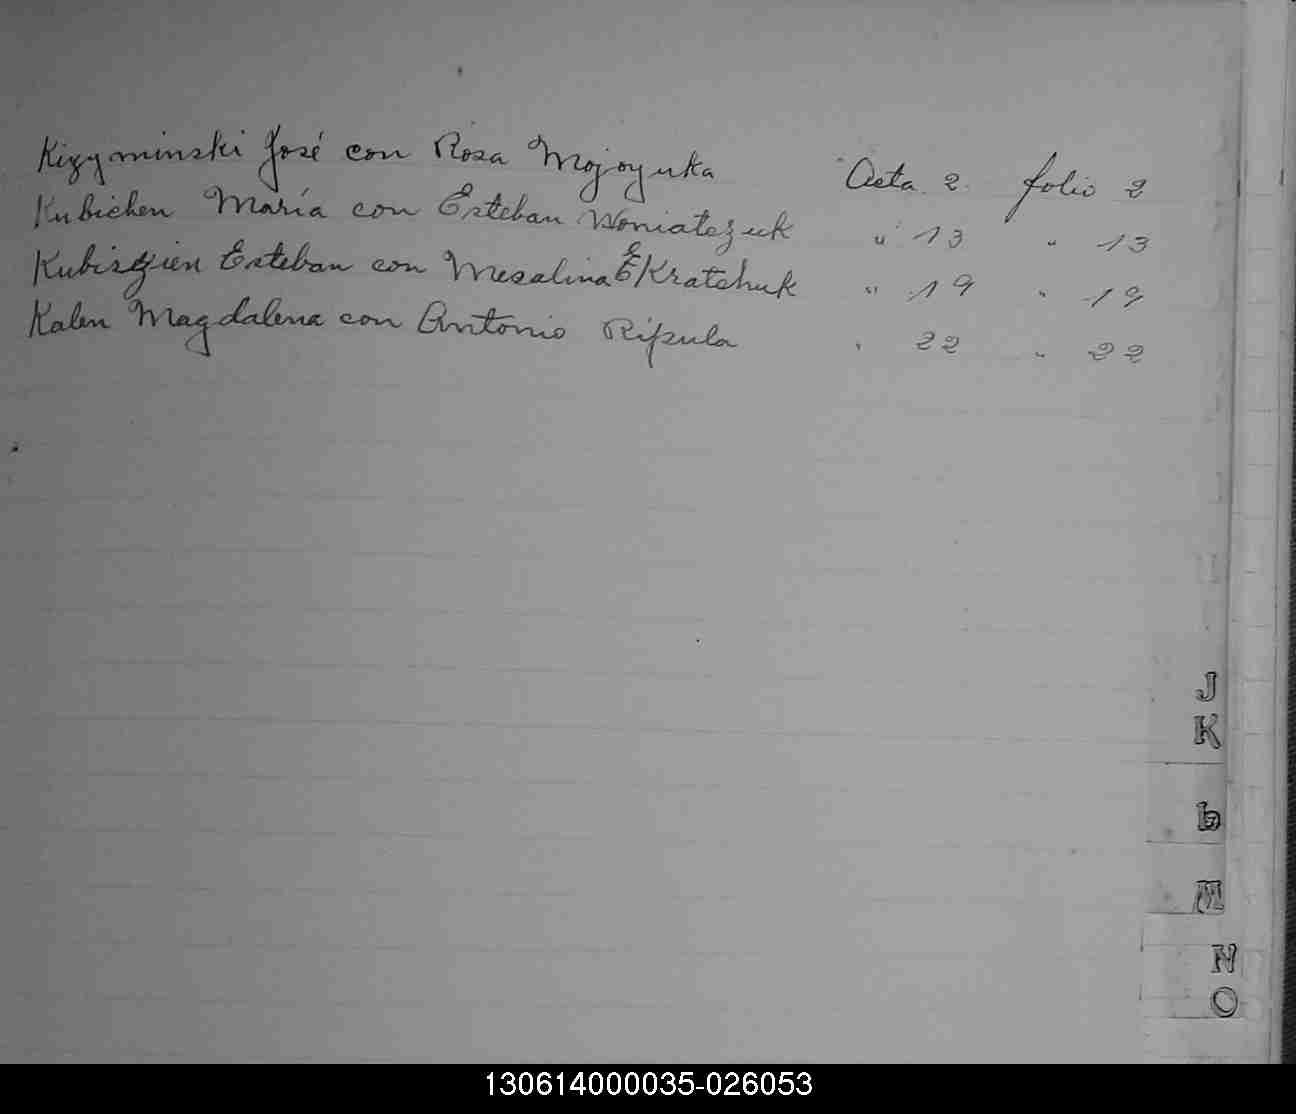 Kizyminski José con Rosa Mojoyuka Acta 2. folio 2
Kubichen María con Esteban Woniatezuk " 13 " 13
Kubiszien Esteban con Mesalina E Kratchuk " 19 " 19
Kalen Magdalena con Antonio Ripula " 22 " 22
J
K
L
M
N
O
130614000035-026053